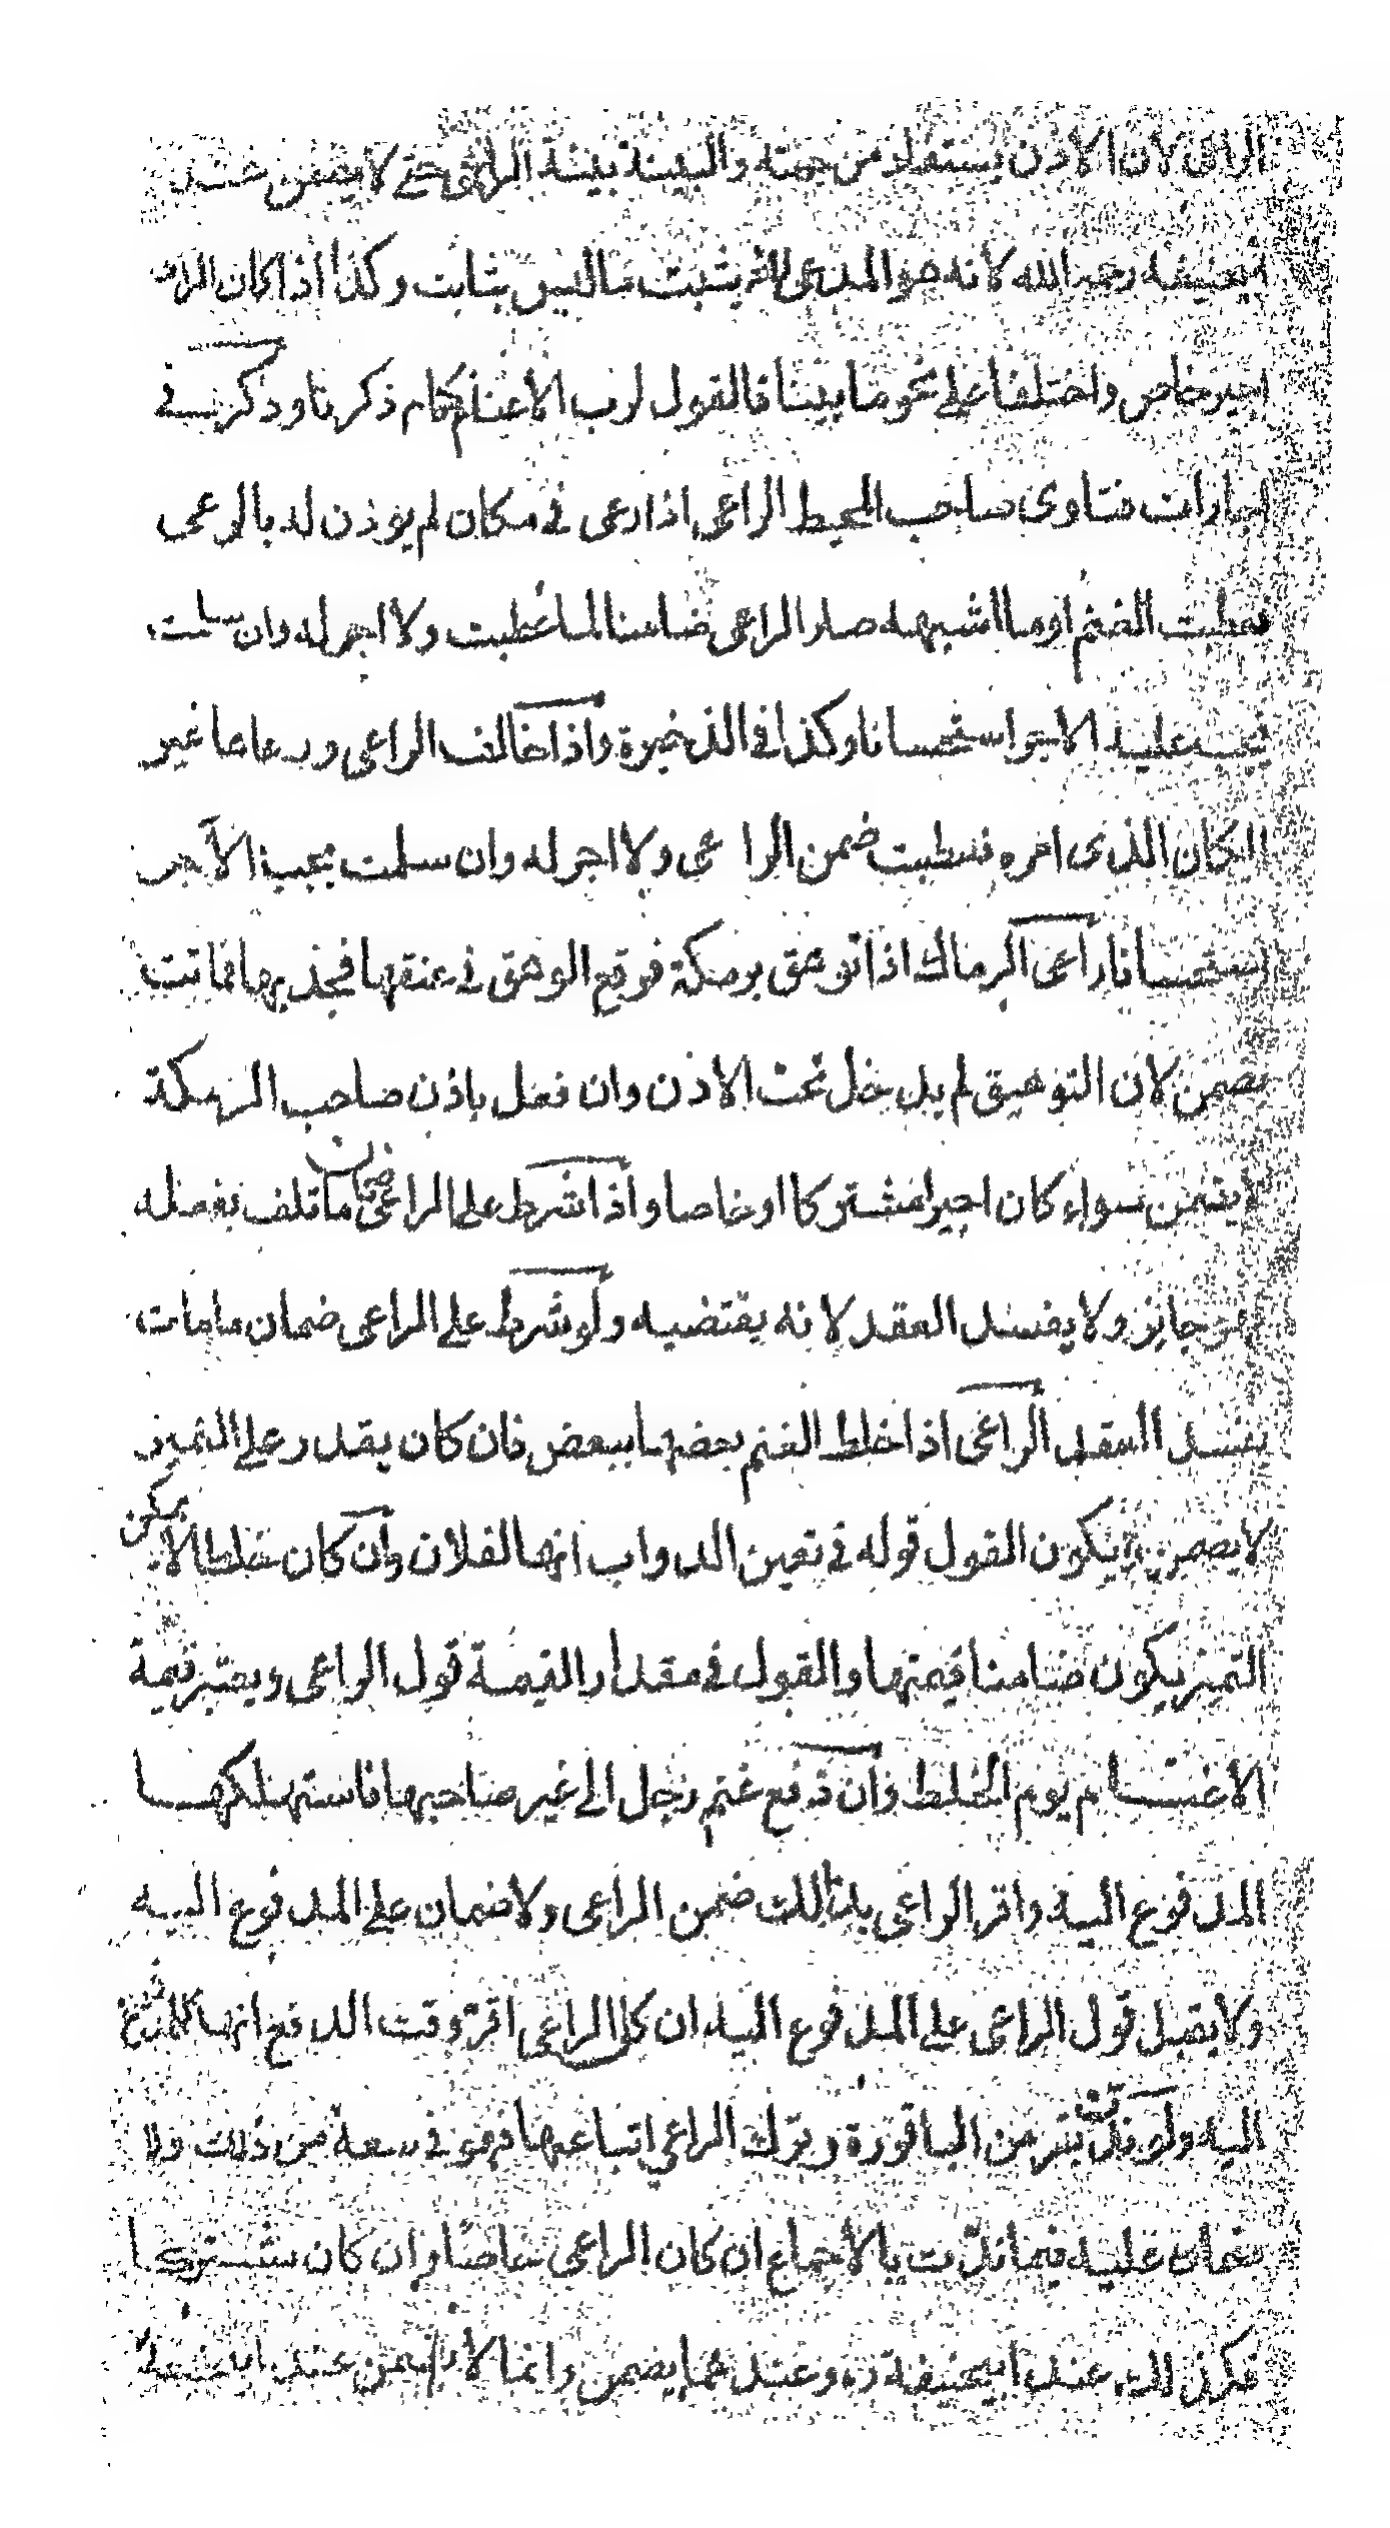 لان الاذن يستفاد من جهته والبينة بينة الراعي حتى لا يضمن عند
رحمه الله لانه هو المدعي يثبت ما ليس بثابت وكذا اذا كان الراعي
اجير خاص واختلفا على نحو ما بينا فالقول لرب الاغنام كما ذكرنا وذكر في
اجارات فتاوى صاحب المحيط الراعي اذا رعى في مكان لم يوذن له بالرعي
فعطبت الغنم او ما اشبهه صار الراعي ضامنا لما عطبت ولا اجر له وان سلمت
عليه الاجر استحسانا وكذا في الذخيرة واذا خالف الراعي ورعاها غير
المكان الذي امره فعطبت ضمن الراعي ولا اجر له وان سلمت يجب الاجر
استحسانا راعي الرماك اذا توهق برمكة فوقع الوهق في عنقها فجذبها فماتت
يضمن لان التوهيق لم يدخل تحت الاذن وان فعل باذن صاحب الرمكة
لا يضمن سواء كان اجيرا مشتركا او خاصا واذا شرط على الراعي ضمان ما تلف بفعله
فهو جايز ولا يفسد العقد لانه يقتضيه ولو شرط على الراعي ضمان ما مات
يفسد العقد الراعي اذا خلط الغنم بعضها ببعض فان كان يقدر على التميز
لا يضمن ويكون القول قوله في تعين الدواب انها لفلان وان كان خلطا لا يمكن
التميز يكون ضامنا قيمتها والقول في مقدار القيمة قول الراعي ويعتبر قيمة
الاغنام يوم الخلط وان دفع غنم رجل الى غير صاحبها فاستهلكها
المدفوع اليه واقر الراعي بذلك ضمن الراعي ولا ضمان على المدفوع اليه
ولا يقبل قول الراعي على المدفوع اليه ان كان الراعي اقر وقت الدفع انها
اليه ولو ندت بقر من الباقورة وترك الراعي اتباعها فهو في سعة من ذلك ولا
ضمان عليه فيما ندت بالاجماع ان كان الراعي خاصا وان كان مشتركا
فكذلك عند ابي حنيفة رح وعندهما يضمن وانما لا يضمن عند ابي حنيفة